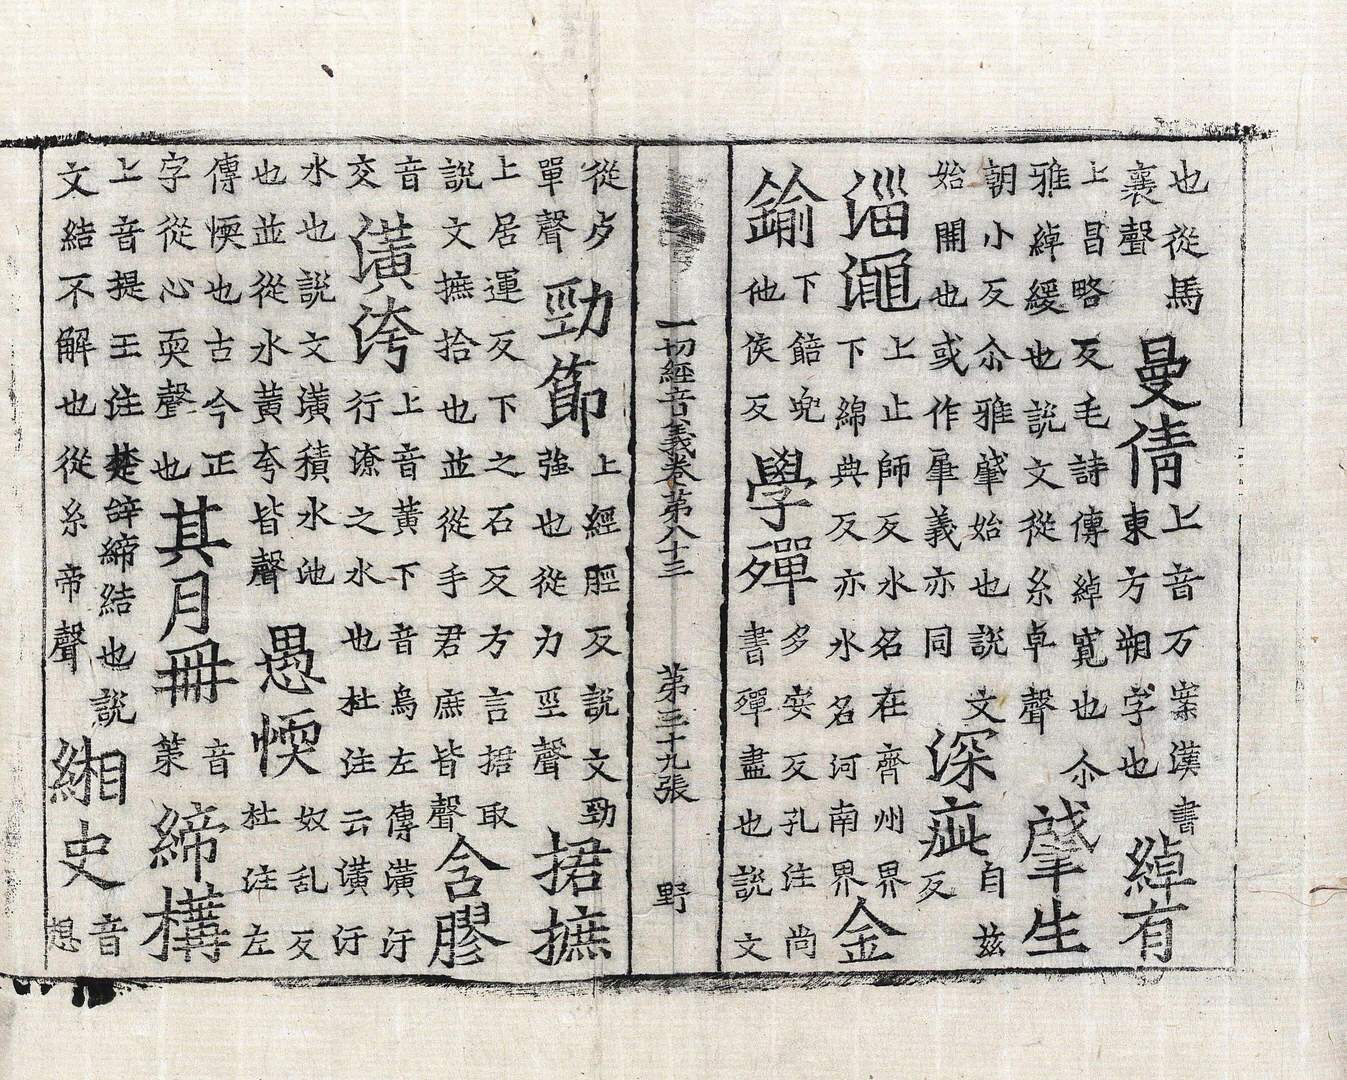 也從馬襄聲曼倩上音万案漢書東方朔字也綽有
上昌略反毛詩傳綽寬也尒雅綽緩也說文從糸卓聲肈生
朝小反尒雅肈始也說文始開也或作肁義亦同深疵自兹反
淄澠上止師反水名在齊州界下綿典反亦水名河南界金
鍮下餢兜他侯反學殫多安反孔注尚書殫盡也說文
一切經音義卷第八十三 第三十九張 野
從歺單聲勁節上經脛反說文勁強也從力巠聲捃摭
上居運反下之石反方言捃取說文摭拾也並從手君庶皆聲含膠
音交潢洿上音黃下音烏左傳潢汙行潦之水也杜注云潢汙
水也說文潢積水池也並從水黃夸皆聲愚愞奴乱反杜注左
傳愞也古今正字從心耎聲也其月冊音策締構
上音提王注楚辝締結也說文結不解也從糸帝聲緗史音想